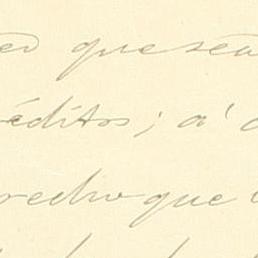 que sea
éditos; a'
recho que